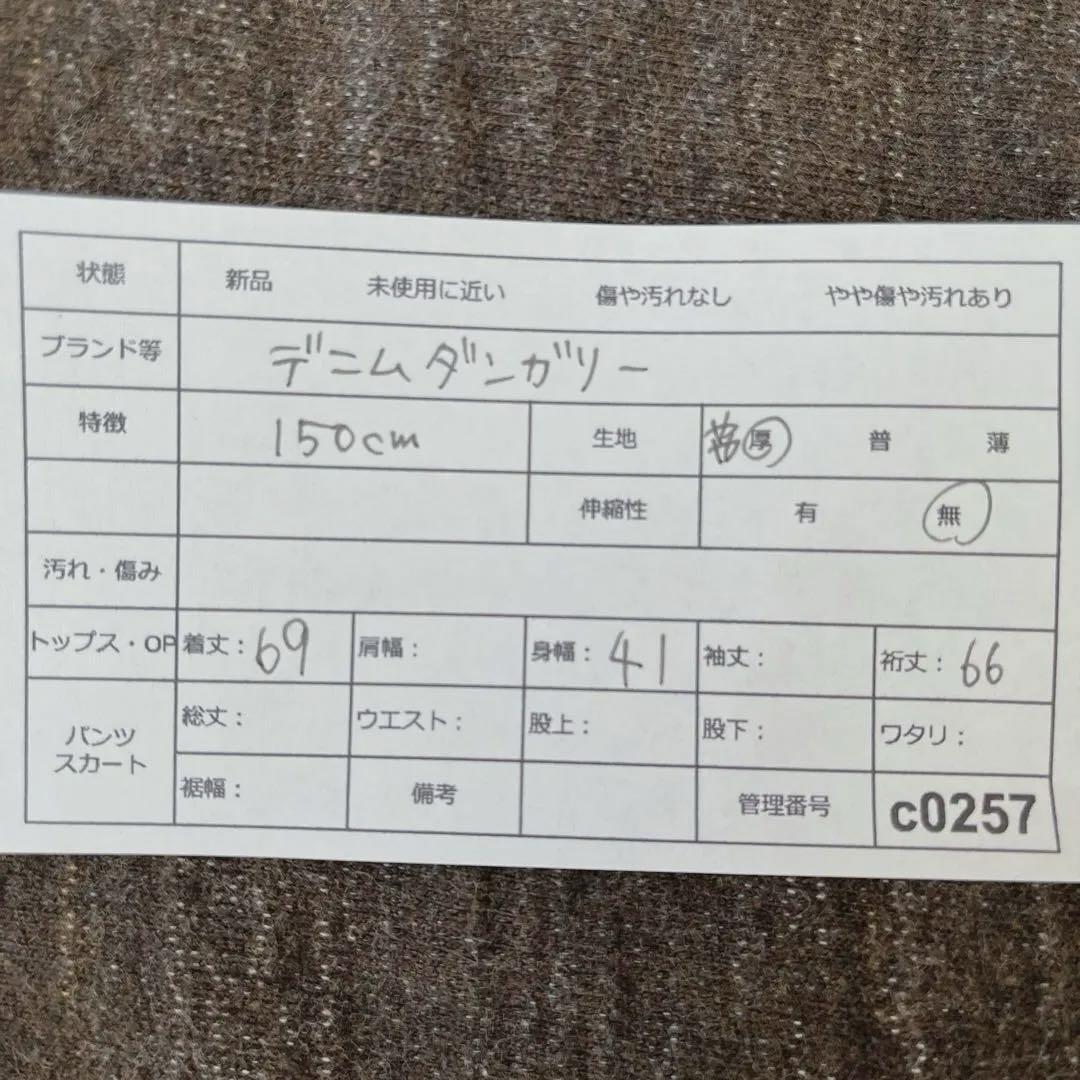 状態 新品 未使用に近い 傷や汚れなし やや傷や汚れあり
ブランド等 デニムダンガリー
特徴 150cm 生地 厚 普 薄
伸縮性 有 無
汚れ・傷み
トップス・OP 着丈：69 肩幅： 身幅：41 袖丈： 裄丈：66
パンツ スカート 総丈： ウエスト： 股上： 股下： ワタリ：
裾幅： 備考 管理番号 c0257